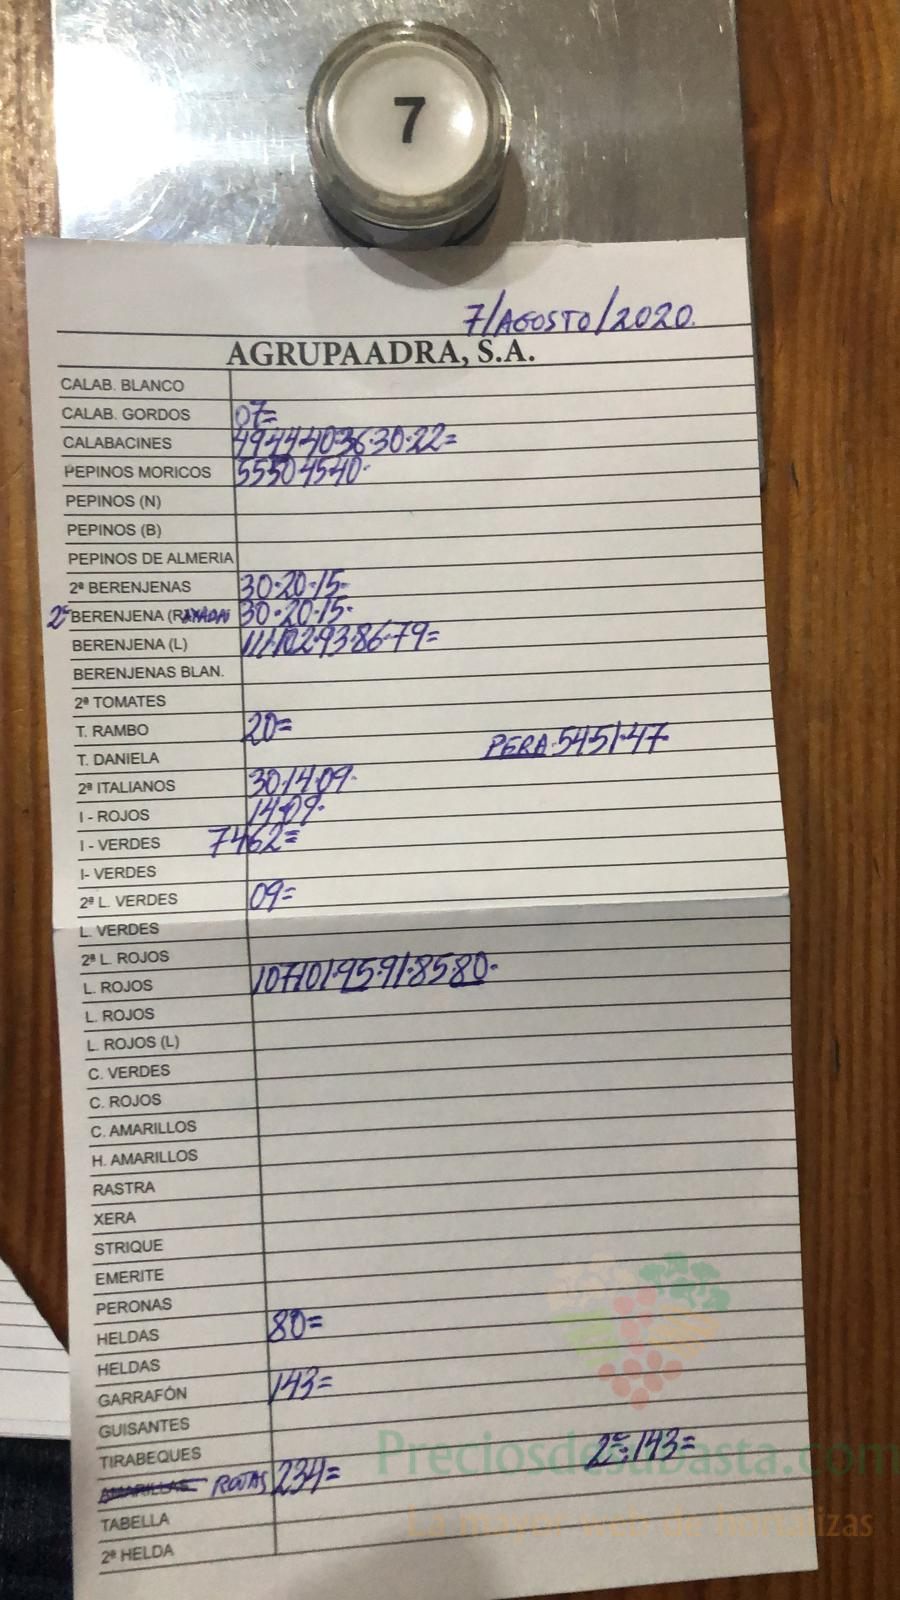 7
7/AGOSTO/2020.
AGRUPAADRA, S.A.
CALAB. BLANCO
CALAB. GORDOS 07=
CALABACINES 49·44·40·36·30·22=
PEPINOS MORICOS 55·50·45·40·
PEPINOS (N)
PEPINOS (B)
PEPINOS DE ALMERIA
2ª BERENJENAS 30·20·15·
2ª BERENJENA (RAYADA) 30·20·15·
BERENJENA (L) 111·102·93·86·79=
BERENJENAS BLAN.
2ª TOMATES
T. RAMBO 20=
T. DANIELA PERA·54·51·47·
2ª ITALIANOS 30·14·09·
I - ROJOS 14·09·
I - VERDES 74·62=
I- VERDES
2ª L. VERDES 09=
L. VERDES
2ª L. ROJOS
L. ROJOS 107·101·95·91·85·80·
L. ROJOS
L. ROJOS (L)
C. VERDES
C. ROJOS
C. AMARILLOS
H. AMARILLOS
RASTRA
XERA
STRIQUE
EMERITE
PERONAS
HELDAS 80=
HELDAS
GARRAFÓN 143=
GUISANTES
TIRABEQUES 2ª: 143=
AMARILLAS ROJAS 234=
TABELLA
2ª HELDA
Preciosdesubasta.com
La mayor web de hortalizas